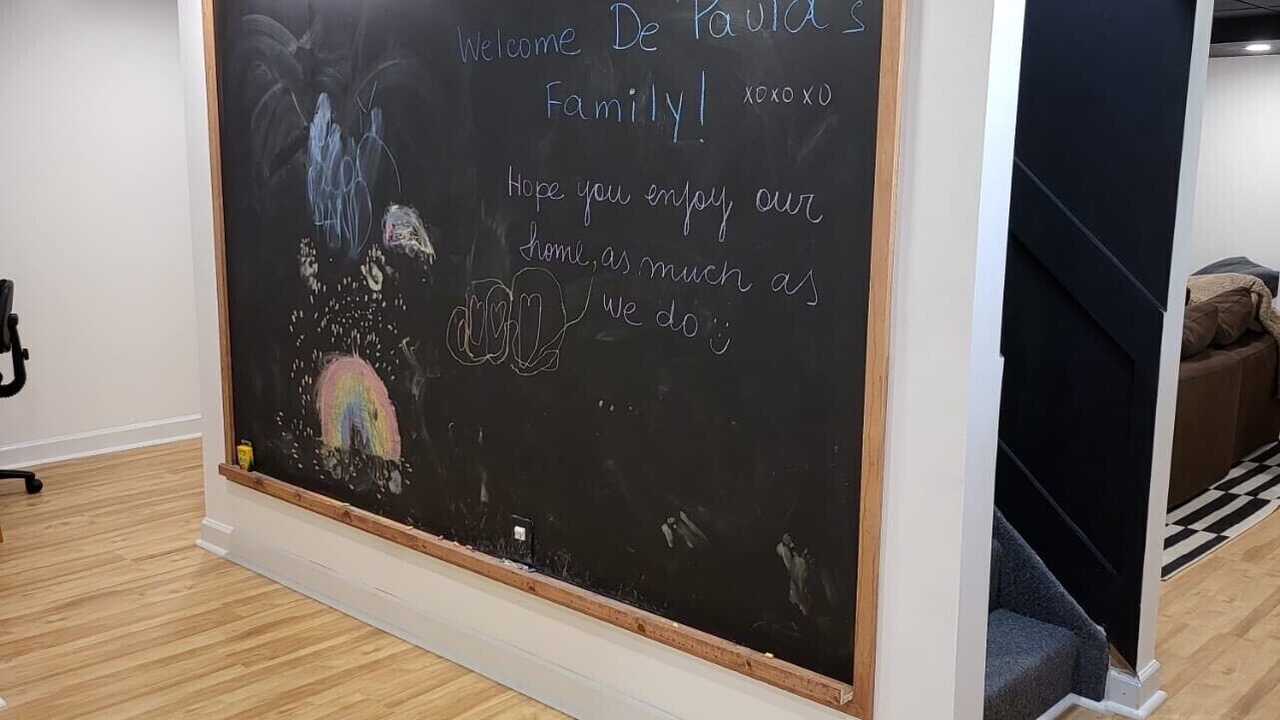 Welcome De Paula's
Family! XOXOXO
Hope you enjoy our
home, as much as
we do :)